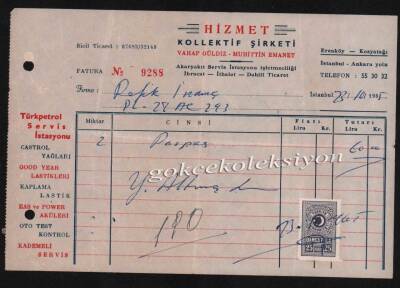 HİZMET
KOLLEKTİF ŞİRKETİ
VAHAP GÜLDİZ - MUHİTTİN EMANET
Akaryakıt Servis İstasyonu işletmeciliği
İhracat — İthalat — Dahilî Ticaret
Sicil Ticaret : 67683/32148
Erenköy — Kozyatağı
İstanbul - Ankara yolu
TELEFON : 55 30 32
FATURA № 9288
Firma : Refik İnanç
İstanbul
Pl-28 AC 293
Türkpetrol
Servis
İstasyonu
CASTROL
YAĞLARI
GOOD YEAR
LASTİKLERİ
KAPLAMA
LASTİK
ESS ve POWER
AKÜLERİ
OTO TEST
KONTROL
KADEMELİ
SERVİS
Miktar CİNSİ Fiatı Tutarı
Lira Kr. Lira Kr.
2 Paspas 60 00
gökçekoleksiyon
Y. Altmış dır
190
25 25